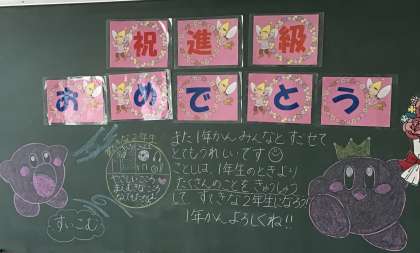 祝進級
おめでとう
また1年かん、みんなとすごせて
とてもうれしいです
ことしは、1年生のときより
たくさんのことをきゅうしゅう
して、すてきな2年生になろう!!
1年かんよろしくね!!
すいこむ